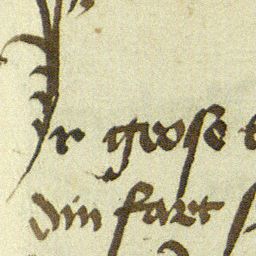 Ir grose
din fart